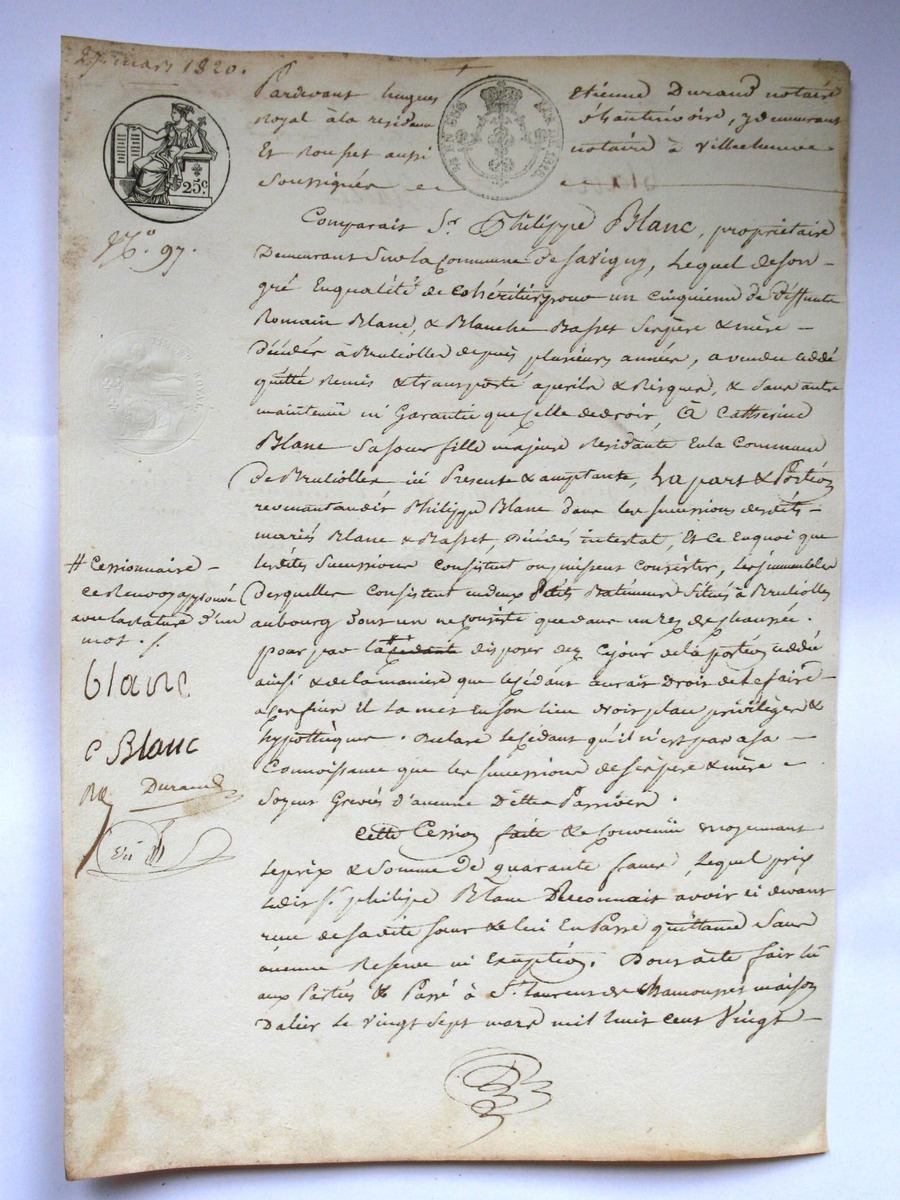 27 mars 1820.
Pardevant hugues Etienne Durand notaire
Royal à la residence d'hauterivoire, y demeurant
Et Rousset aussi notaire à Villecheneve
Soussignés
25c.
N.o 97.
Comparait Sr. Philippe Blanc, propriétaire
Demeurant Sur la Commune de Savigny, Lequel de son
gré En qualité de cohéritier pour un cinquieme de Deffunts
Romain Blanc, & Blanche Basset Ses père & mère
Décédés à Brulioller depuis plusieurs années, a vendu cédé
quitté Remis & transporté a perils & Risques, & Sans autre
maintenüe ni Garantie que celle de droit, à Catherine
Blanc Sa sœur fille majeure Residante En la Commune
De Brulioller ici Presente & acceptante, La part & Portion
revenant audit Philippe Blanc dans les successions desdits
mariés Blanc & Basset, Décédés intestat, Et Ce En quoi que
lesdites Successions consistent ou puissent consister, les immeubles
Desquelles Consistent en deux Petits Batimens Situés à Brulioller
au bourg dont un ne consiste que dans un rez de chaussée.
pour par la cedante disposer dez ce jour de la portion cédée
ainsi & de la maniere que le Cédant aurait Droit de le faire
a ses fins Il La met En Son lieu droit place privilèges &
hypothèques. Declare le Cédant qu'il n'est pas a sa
Connoissance que les successions de ses père & mère
Soyent Grevées d'aucune Dettes Passives.
Cette Cession faite & convenüe moyennant
Le prix & Somme de quarante francs, Lequel prix
Ledit Sr. philippe Blanc Reconnait avoir ci devant
reçu de sadite sœur & lui En Passe quittance Sans
aucune Reserve ni Exception. Dont acte fait lû
aux Parties & Passé à St. Laurent de chamousset maison
Dalier Le Vingt Sept mars mil huit cent Vingt
# Cessionnaire
ce Renvoy approuvé
avec la rature d'un
mot. /.
blanc
C Blanc
Durand